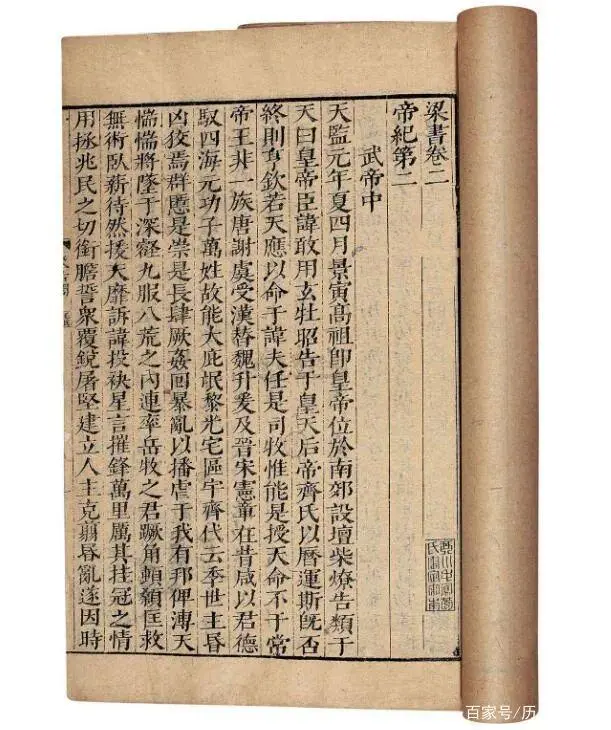 梁書卷二
帝紀第二
武帝中
天監元年夏四月景寅高祖即皇帝位於南郊設壇柴燎告類于
天曰皇帝臣諱敢用玄牡昭告于皇天后帝齊氏以曆運斯旣否
終則亨欽若天應以命于諱夫任是司牧惟能是授天命不于常
帝王非一族唐謝虞受漢替魏升爰及晉宋憲章在昔咸以君德
馭四海元功子萬姓故能大庇氓黎光宅區宇齊代云季世主昏
凶狡焉群慝是崇是長肆厥姦回暴亂以播虐于我有邦俾溥天
惴惴將墜于深壑九服八荒之內連率岳牧之君蹶角頓顙匡救
無術臥薪待然援天靡訴諱投袂星言摧鋒萬里厲其挂冠之情
用拯兆民之切銜膽誓衆覆銳屠堅建立人主克翦昏亂遂因時
百家号/历